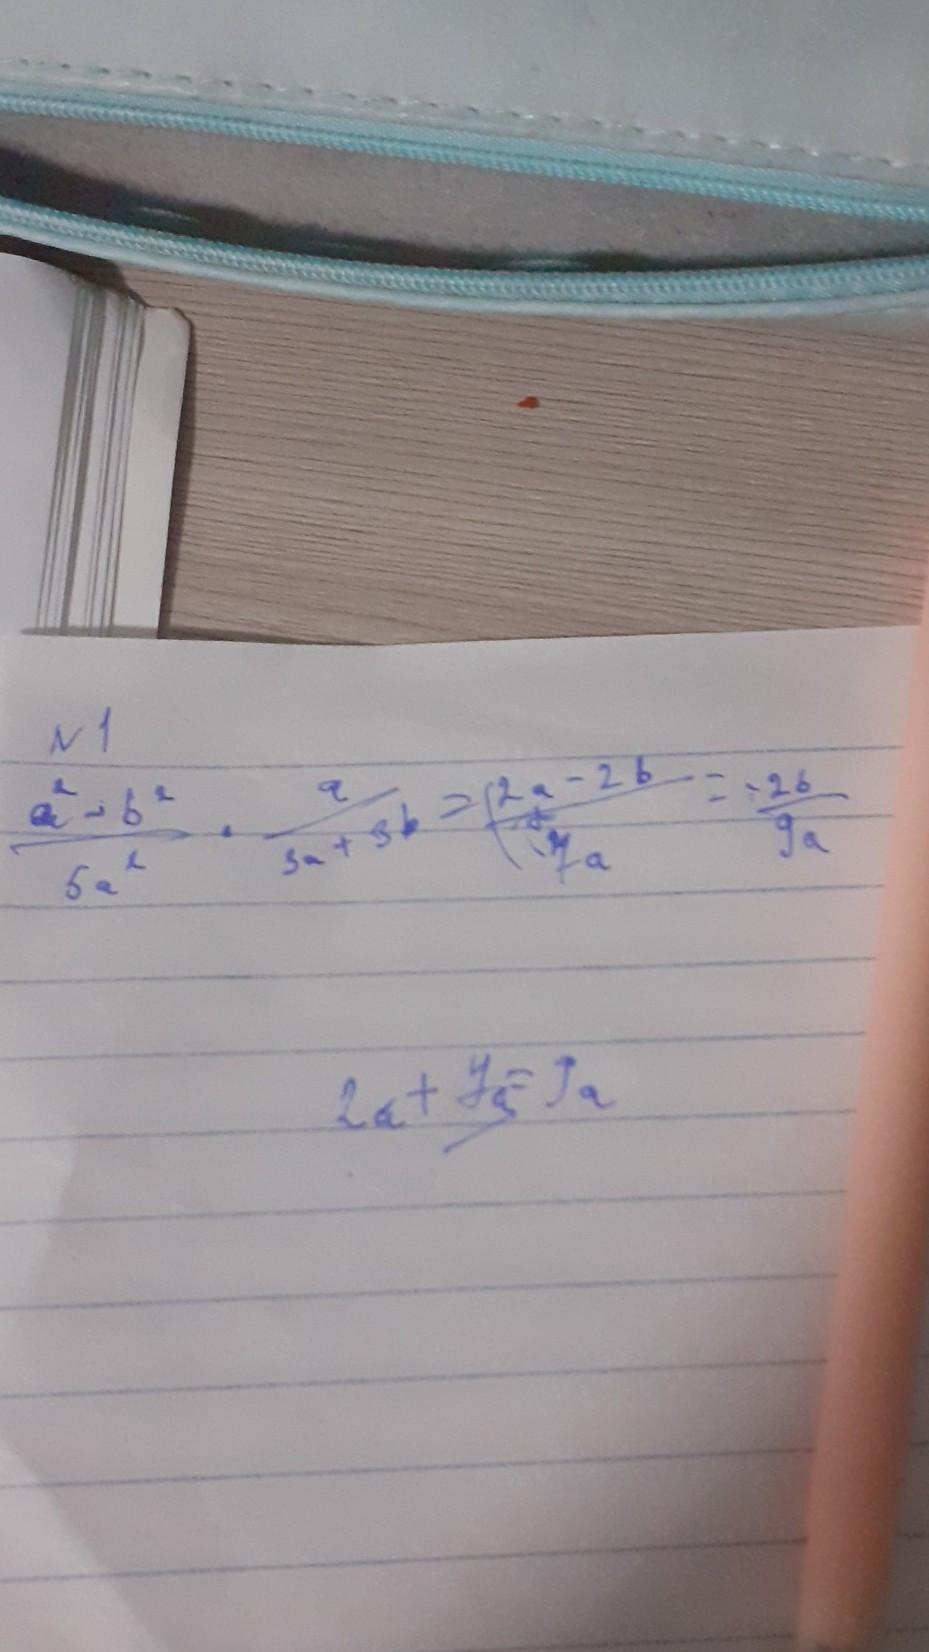 N 1
a² - b² / 5a² · a / 3a + 3b = (2a - 2b / 7a = -2b / 9a
2a + 7a = 9a